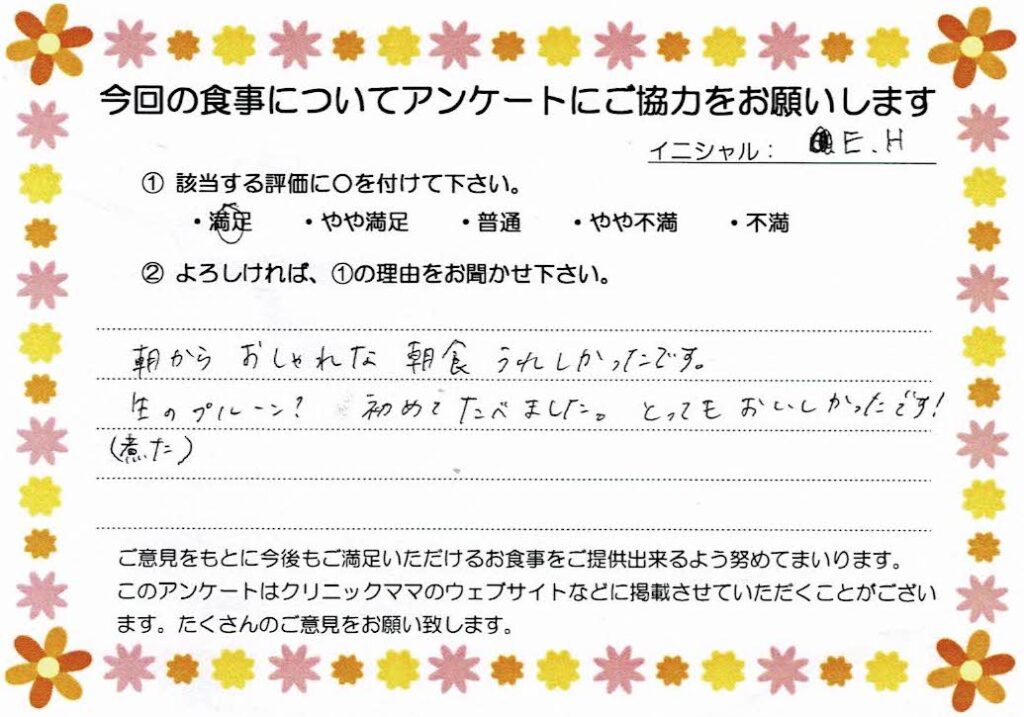 今回の食事についてアンケートにご協力をお願いします
イニシャル： E.H
① 該当する評価に〇を付けて下さい。
・満足 ・やや満足 ・普通 ・やや不満 ・不満
② よろしければ、①の理由をお聞かせ下さい。
朝から おしゃれな 朝食 うれしかったです。
生のプルーン? 初めてたべました。とってもおいしかったです!
(煮た)
ご意見をもとに今後もご満足いただけるお食事をご提供出来るよう努めてまいります。
このアンケートはクリニックママのウェブサイトなどに掲載させていただくことがござい
ます。たくさんのご意見をお願い致します。